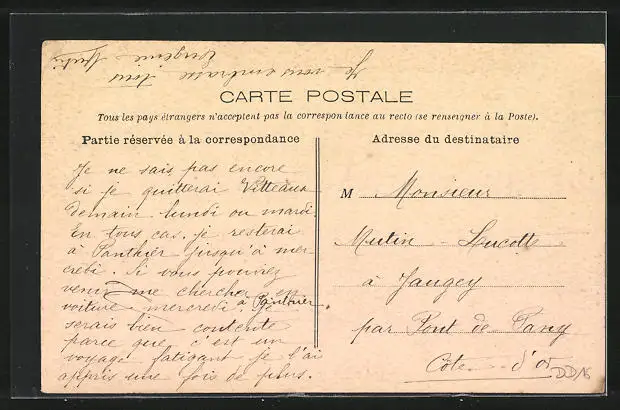 Je vous embrasse tous
Eugénie Mutin
CARTE POSTALE
Tous les pays étrangers n'acceptent pas la correspondance au recto (se renseigner à la Poste).
Partie réservée à la correspondance
Adresse du destinataire
Je ne sais pas encore
si je quitterai Vitteaux
demain lundi ou mardi.
En tous cas, je resterai
à Panthier jusqu'à mer-
credi. Si vous pouvez
venir me chercher en
voiture mercredi à Panthier, je
serais bien contente
parce que c'est un
voyage fatigant je l'ai
appris une fois de plus.
M Monsieur
Mutin-Lucotte
à Jaugey
par Pont de Pany
Côte-d'Or
DD16